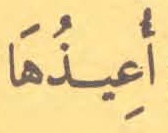 أُعِيذُهَا